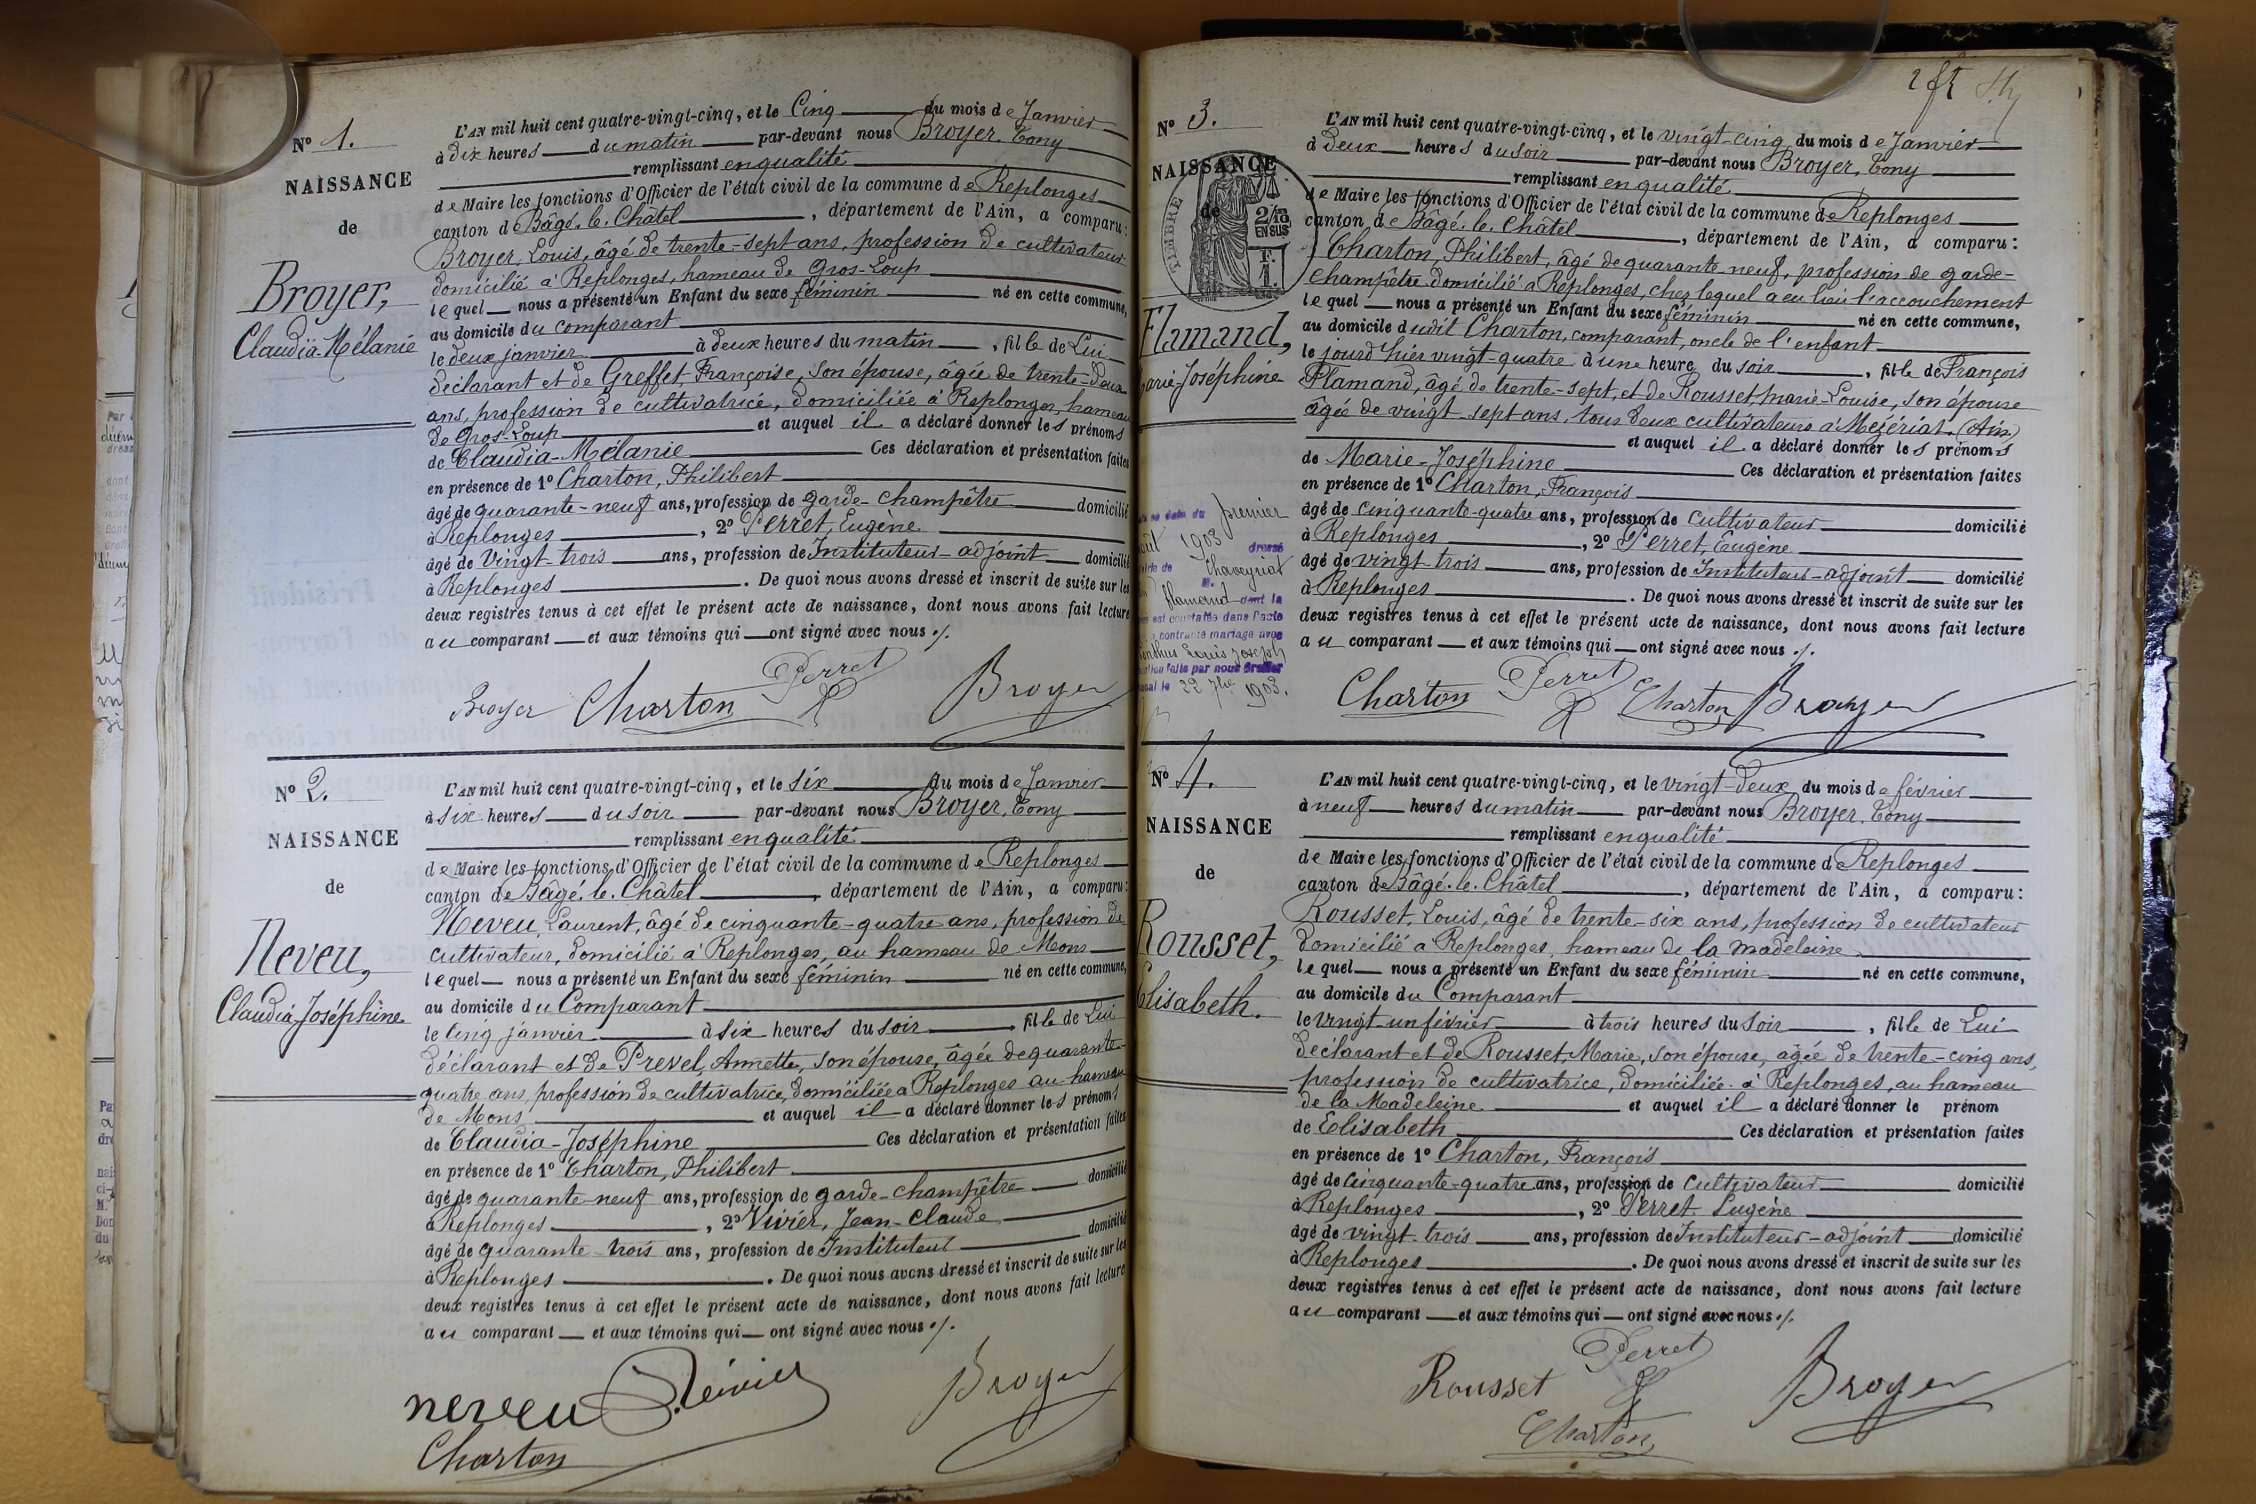 N° 1.
NAISSANCE
de
Broyer,
Claudia-Mélanie
L'AN mil huit cent quatre-vingt-cinq, et le Cinq du mois de Janvier
à dix heures du matin par-devant nous Broyer, Tony
remplissant en qualité
de Maire les fonctions d'Officier de l'état civil de la commune de Replonges
canton de Bâgé-le-Châtel, département de l'Ain, a comparu:
Broyer, Louis, âgé de trente-sept ans, profession de cultivateur
domicilié à Replonges, hameau de Gros-Loup
lequel nous a présenté un Enfant du sexe féminin né en cette commune,
au domicile du comparant
le deux janvier à deux heures du matin, fille de Lui
déclarant et de Greffet, Françoise, son épouse, âgée de trente-deux
ans, profession de cultivatrice, domiciliée à Replonges, hameau
de Gros-Loup et auquel il a déclaré donner les prénoms
de Claudia-Mélanie Ces déclaration et présentation faites
en présence de 1° Charton, Philibert
âgé de quarante-neuf ans, profession de garde-champêtre domicilié
à Replonges, 2° Perret, Eugène
âgé de Vingt-trois ans, profession de Instituteur-adjoint domicilié
à Replonges. De quoi nous avons dressé et inscrit de suite sur les
deux registres tenus à cet effet le présent acte de naissance, dont nous avons fait lecture
au comparant et aux témoins qui ont signé avec nous ./.
Broyer Charton Perret Broyer
N° 2.
NAISSANCE
de
Neveu,
Claudia-Joséphine
L'AN mil huit cent quatre-vingt-cinq, et le six du mois de Janvier
à six heures du soir par-devant nous Broyer, Tony
remplissant en qualité
de Maire les fonctions d'Officier de l'état civil de la commune de Replonges
canton de Bâgé-le-Châtel, département de l'Ain, a comparu:
Neveu, Laurent, âgé de cinquante-quatre ans, profession de
cultivateur, domicilié à Replonges, au hameau de Mons
lequel nous a présenté un Enfant du sexe féminin né en cette commune,
au domicile du Comparant
le cinq janvier à six heures du soir, fille de Lui
déclarant et de Prevel, Annette, son épouse, âgée de quarante-
quatre ans, profession de cultivatrice, domiciliée à Replonges au hameau
de Mons et auquel il a déclaré donner les prénoms
de Claudia-Joséphine Ces déclaration et présentation faites
en présence de 1° Charton, Philibert
âgé de quarante-neuf ans, profession de garde-champêtre domicilié
à Replonges, 2° Vivier, Jean-Claude
âgé de quarante-trois ans, profession de Instituteur domicilié
à Replonges. De quoi nous avons dressé et inscrit de suite sur les
deux registres tenus à cet effet le présent acte de naissance, dont nous avons fait lecture
au comparant et aux témoins qui ont signé avec nous ./.
neveu Vivier Broyer
Charton
N° 3.
NAISSANCE
de
TIMBRE
2/10
EN SUS
F.
1.
Flamand,
Marie-Joséphine
date du premier
août 1903 dressé
de Chaveyriat
Flamand dont la
est constatée dans l'acte
contracté mariage avec
Louis Joseph
faite par nous Greffier
le 22 7bre 1903.
L'AN mil huit cent quatre-vingt-cinq, et le vingt-cinq du mois de Janvier
à deux heures du soir par-devant nous Broyer, Tony
remplissant en qualité
de Maire les fonctions d'Officier de l'état civil de la commune de Replonges
canton de Bâgé-le-Châtel, département de l'Ain, a comparu:
Charton, Philibert, âgé de quarante neuf, profession de garde-
champêtre domicilié à Replonges, chez lequel a eu lieu l'accouchement
lequel nous a présenté un Enfant du sexe féminin né en cette commune,
au domicile dudit Charton, comparant, oncle de l'enfant
le jourd'hier vingt-quatre à une heure du soir, fille de François
Flamand, âgé de trente-sept, et de Rousset, Marie-Louise, son épouse
âgée de vingt-sept ans, tous deux cultivateurs à Mézériat. (Ain)
et auquel il a déclaré donner les prénoms
de Marie-Joséphine Ces déclaration et présentation faites
en présence de 1° Charton, François
âgé de cinquante-quatre ans, profession de cultivateur domicilié
à Replonges, 2° Perret, Eugène
âgé de vingt-trois ans, profession de Instituteur-adjoint domicilié
à Replonges. De quoi nous avons dressé et inscrit de suite sur les
deux registres tenus à cet effet le présent acte de naissance, dont nous avons fait lecture
au comparant et aux témoins qui ont signé avec nous ./.
Charton Perret Charton Broyer
N° 4.
NAISSANCE
de
Rousset,
Elisabeth.
L'AN mil huit cent quatre-vingt-cinq, et le vingt-deux du mois de février
à neuf heures du matin par-devant nous Broyer, Tony
remplissant en qualité
de Maire les fonctions d'Officier de l'état civil de la commune de Replonges
canton de Bâgé-le-Châtel, département de l'Ain, a comparu:
Rousset, Louis, âgé de trente-six ans, profession de cultivateur
domicilié à Replonges, hameau de la madeleine
lequel nous a présenté un Enfant du sexe féminin né en cette commune,
au domicile du Comparant
le vingt-un février à trois heures du soir, fille de Lui
déclarant et de Rousset, Marie, son épouse, âgée de trente-cinq ans,
profession de cultivatrice, domiciliée à Replonges, au hameau
de la Madeleine et auquel il a déclaré donner le prénom
de Elisabeth Ces déclaration et présentation faites
en présence de 1° Charton, François
âgé de Cinquante-quatre ans, profession de cultivateur domicilié
à Replonges, 2° Perret Eugène
âgé de vingt-trois ans, profession de Instituteur-adjoint domicilié
à Replonges. De quoi nous avons dressé et inscrit de suite sur les
deux registres tenus à cet effet le présent acte de naissance, dont nous avons fait lecture
au comparant et aux témoins qui ont signé avec nous ./.
Rousset Perret Broyer
Charton